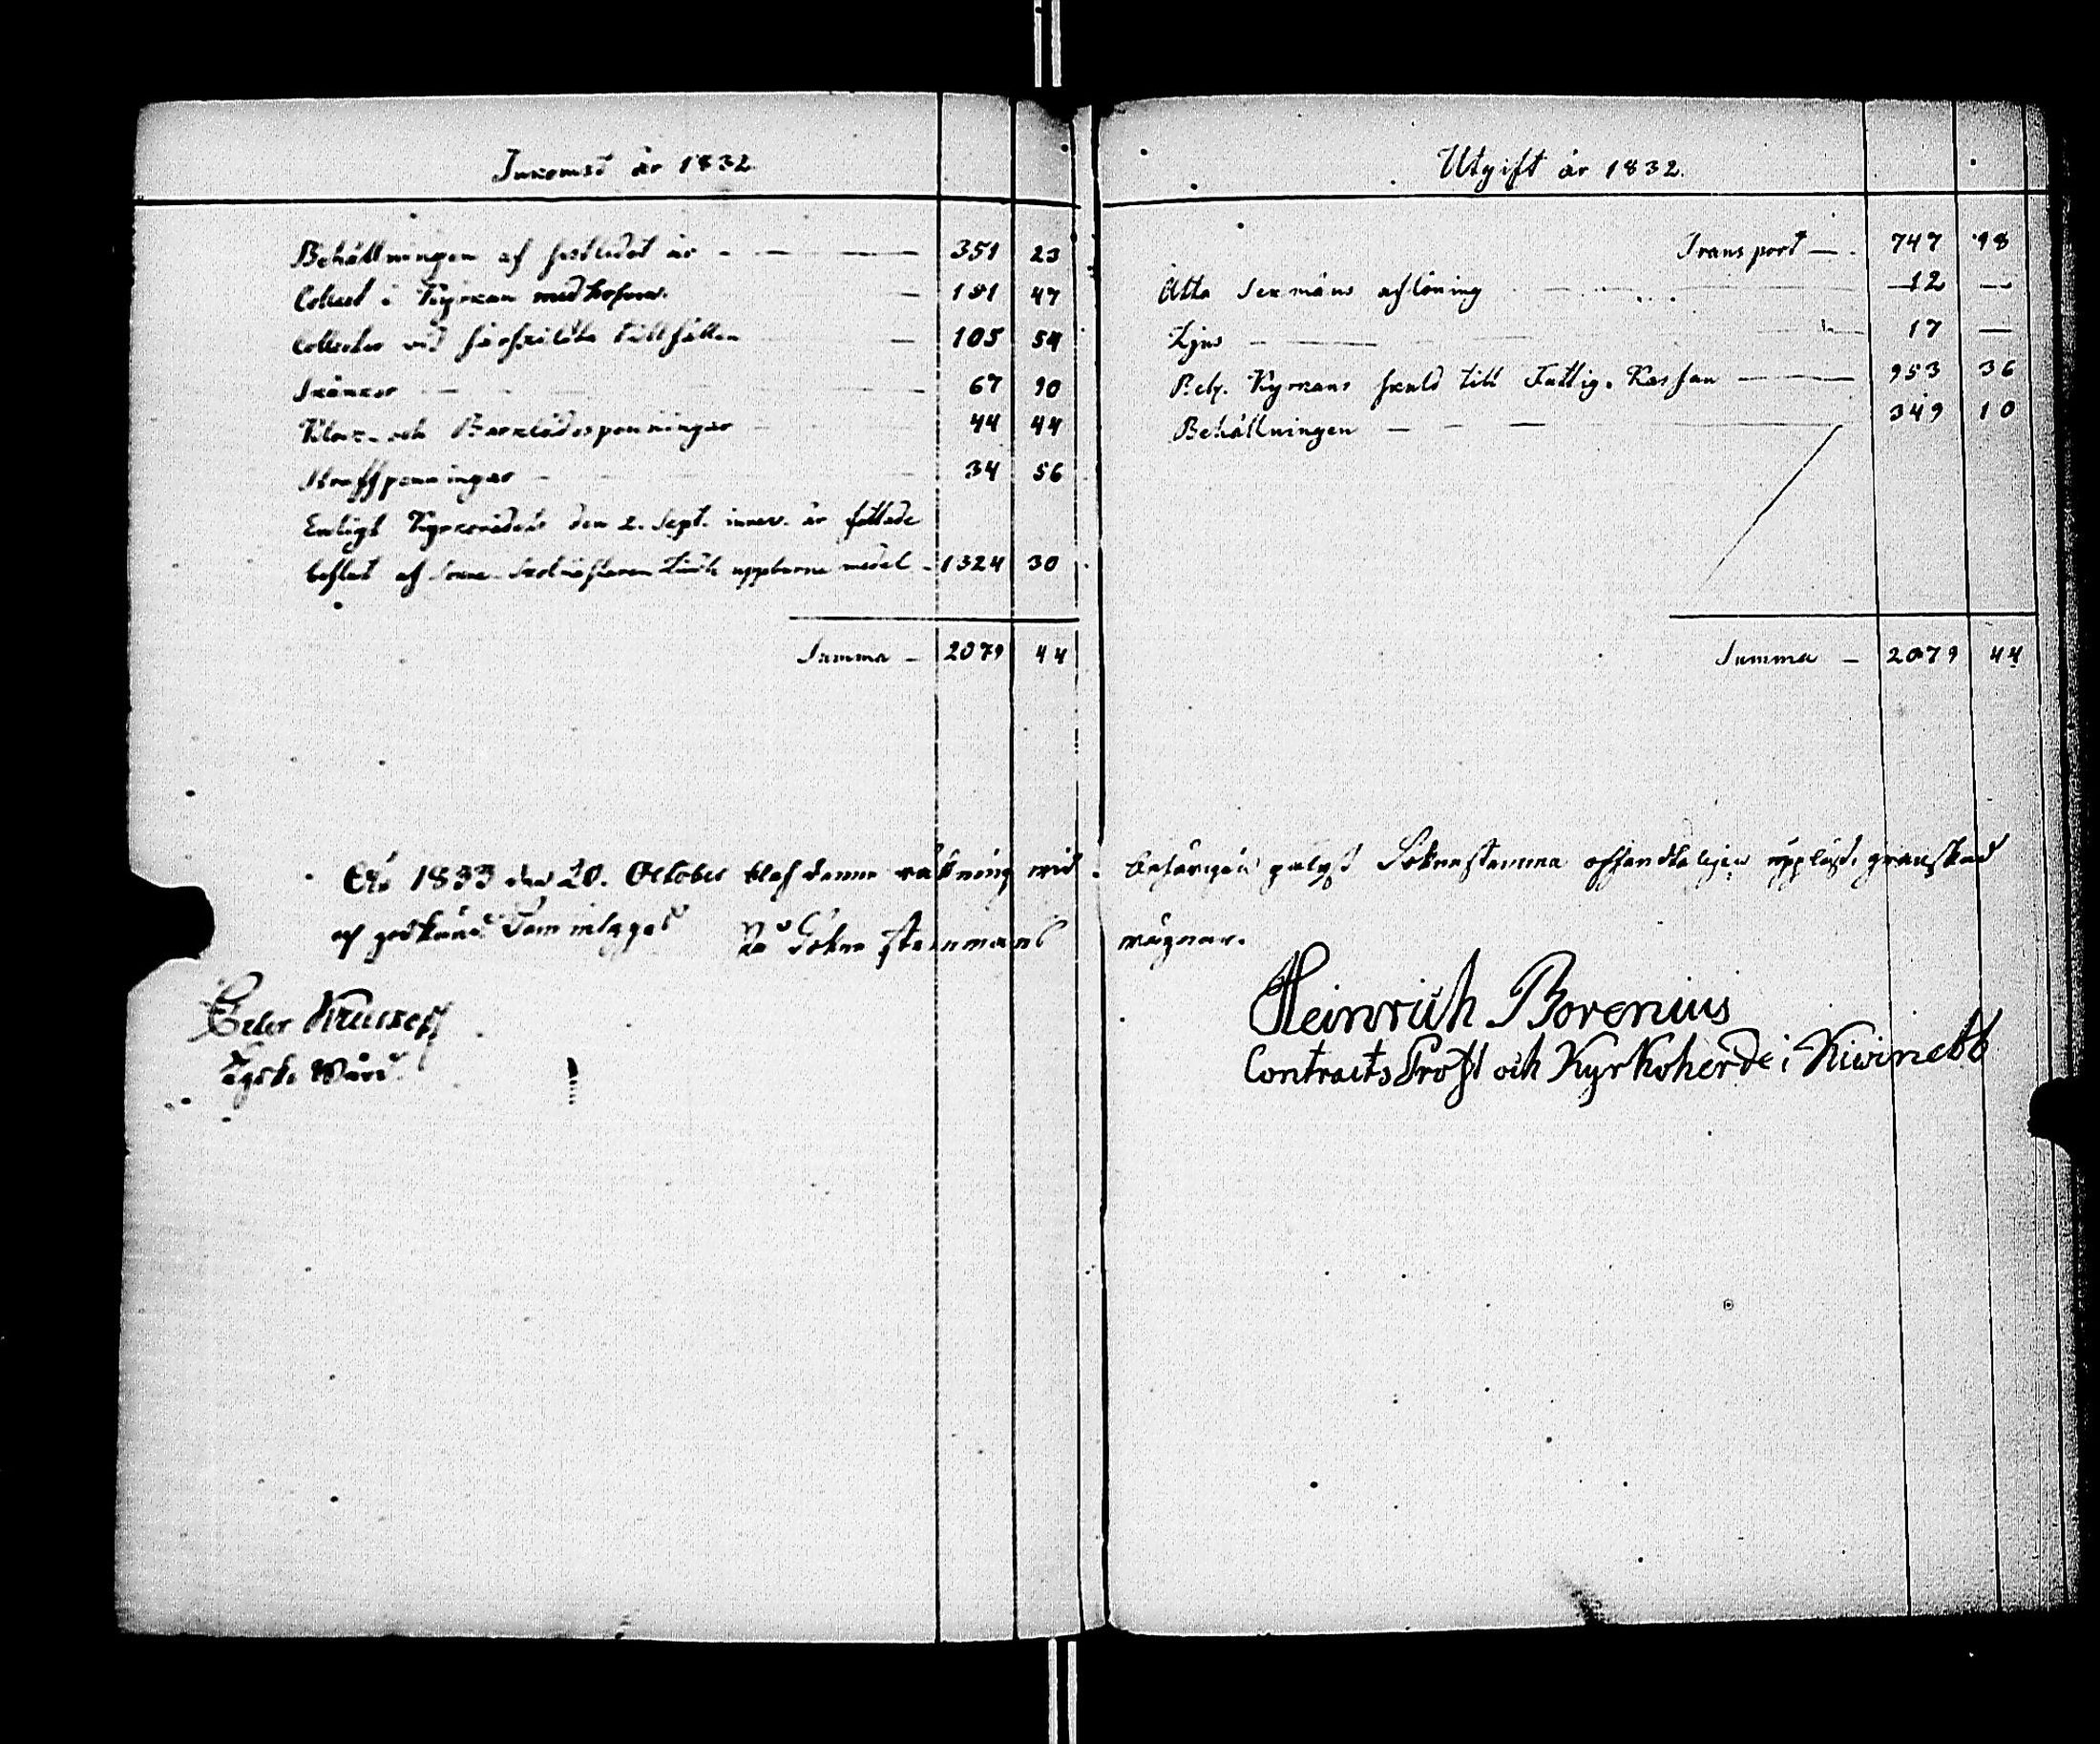 Inkomst år 1832
Behållningen af sistledet år — 351 23
Collect i Kyrkan med håfwen — 151 47
Collecter vid särskilda tillfällen — 105 54
Skänker — 67 10
Klock- och Barklädespenningar — 44 44
Straffpenningar — 34 56
Enligt Kyrkorådets den 2. Sept. innev. år fattade
beslut af Skolmästaren uppburne medel — 1324 30
Summa — 2079 44
Utgift år 1832.
Transport — 747 98
Åtta Sexmäns aflöning — 12 —
Ljus — 17 —
Bet. Kyrkans skuld till Fattig-Kassan — 953 36
Behållningen — 349 10
Summa — 2079 44
År 1833 den 20. October blef denne räkning wid behörigen pålyst Sokne stämma offenteligen uppläst, granskad
och godkänd Som intygas På Sokne stämmans wägnar.
Peter
Heinrich Borenius
Contracts Prost och Kyrkoherde i Kiwinebb